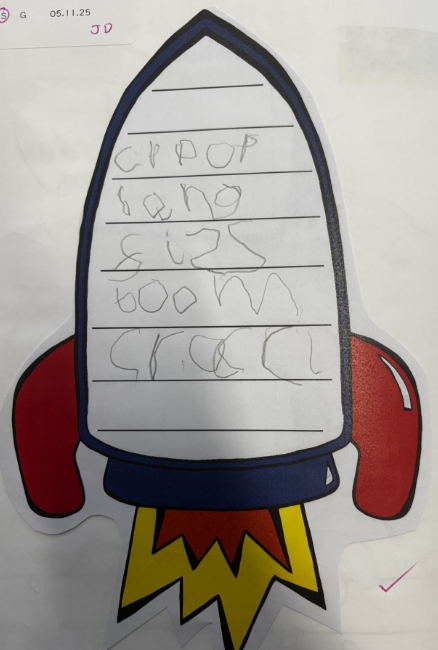 S G 05.11.25
JD
cr pop
bang
fizs
boom
cracc